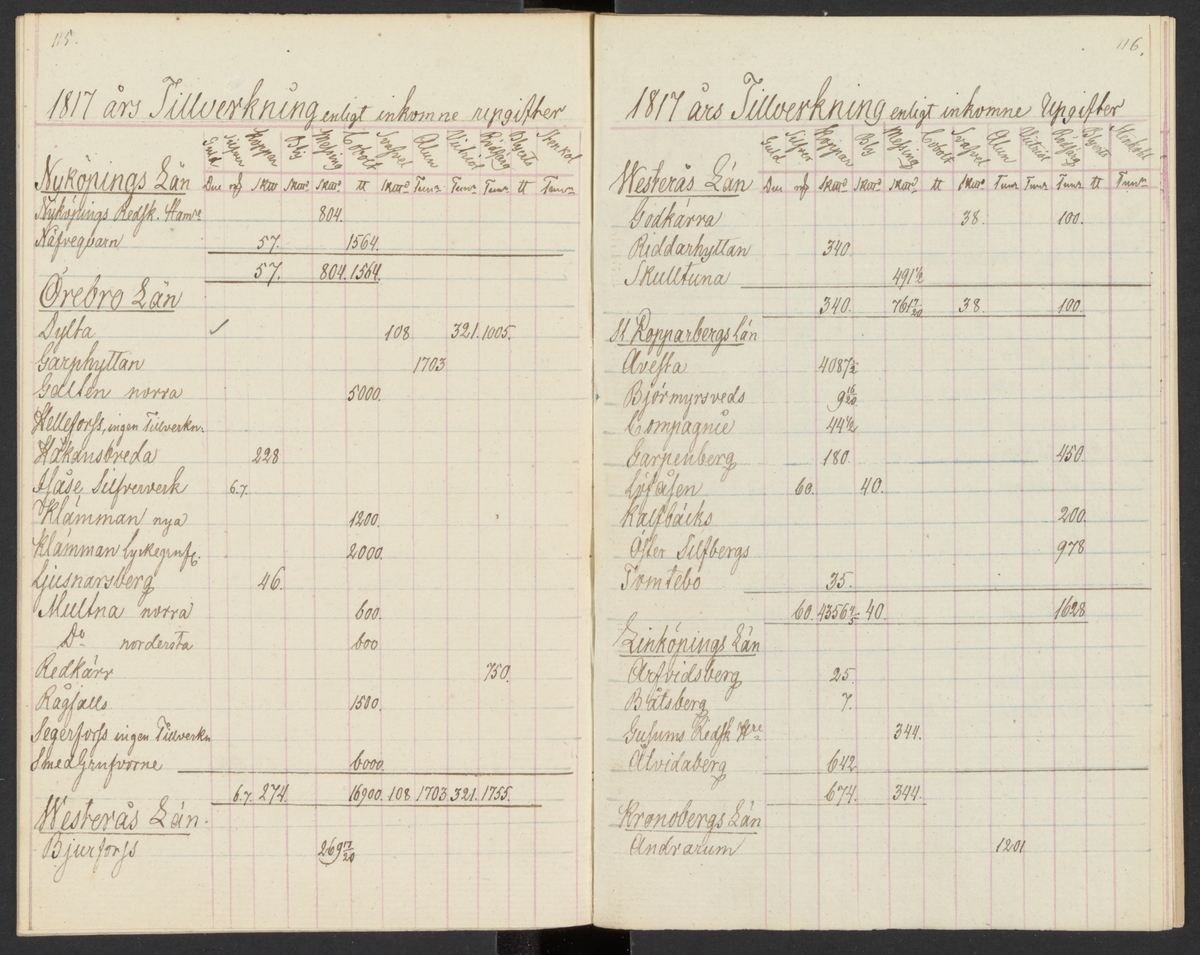 115.
1817 års Tillverkning enligt inkomne upgifter
Guld Silfver Koppar Bly Meßing Cobolt Svafvel Alun Victriol Rödfärg Blyertz Stenkol
Nyköpings Län Duc Skttd Skttd Skttd tt Skttd Tunr Tunr Tunr tt Tunr
Nyköpings Redsk. Hamr 804.
Näfveqvarn 57. 1564.
57. 804. 1564.
Örebro Län
Dylta ✓ 108 321. 1005.
Garphyttan 1703
Galten norra 5000.
Helleforss, ingen Tillverkn:
Håkansbreda 228
Håse Silfververk 6.7.
Klämman nya 1200.
Klämman 2000.
Ljusnarsberg 46.
Multna norra 600.
Do nordersta 600
Redkärr 750.
Rågfalls 1500.
Segerforss ingen Tillverkn
Smedgrufvorne 6000.
6.7. 274. 16900. 108. 1703. 321. 1755.
Westerås Län.
Bjurforss 269 17/20
116.
1817 års Tillverkning enligt inkomne Upgifter
Guld Silfver Koppar Bly Meßing Cobolt Svafvel Alun Victriol Rödfärg Blyertt Stenkohl
Westerås Län Duc Skttd Skttd Skttd tt Skttd Tunr Tunr Tunr tt Tunr
Godkärra 38. 100.
Riddarhyttan 340.
Skulltuna 491 1/2
340. 761 7/20 38. 100.
St Kopparbergs Län
Avesta 4087 1/2
Björmyrsveds 9 16/20
Compagnie 44 1/2
Garpenberg 180. 450.
Löfåsen 60. 40.
Kalfbäcks 200.
Öster Silfbergs 978
Tomtebo 35.
60. 4356 4/5 40. 1628
Linköpings Län
Arfvidsberg 25.
Båtsberg 7.
Gusums Redsk 344.
Åtvidaberg 642
674. 344.
Kronobergs Län
Andrarum 1201